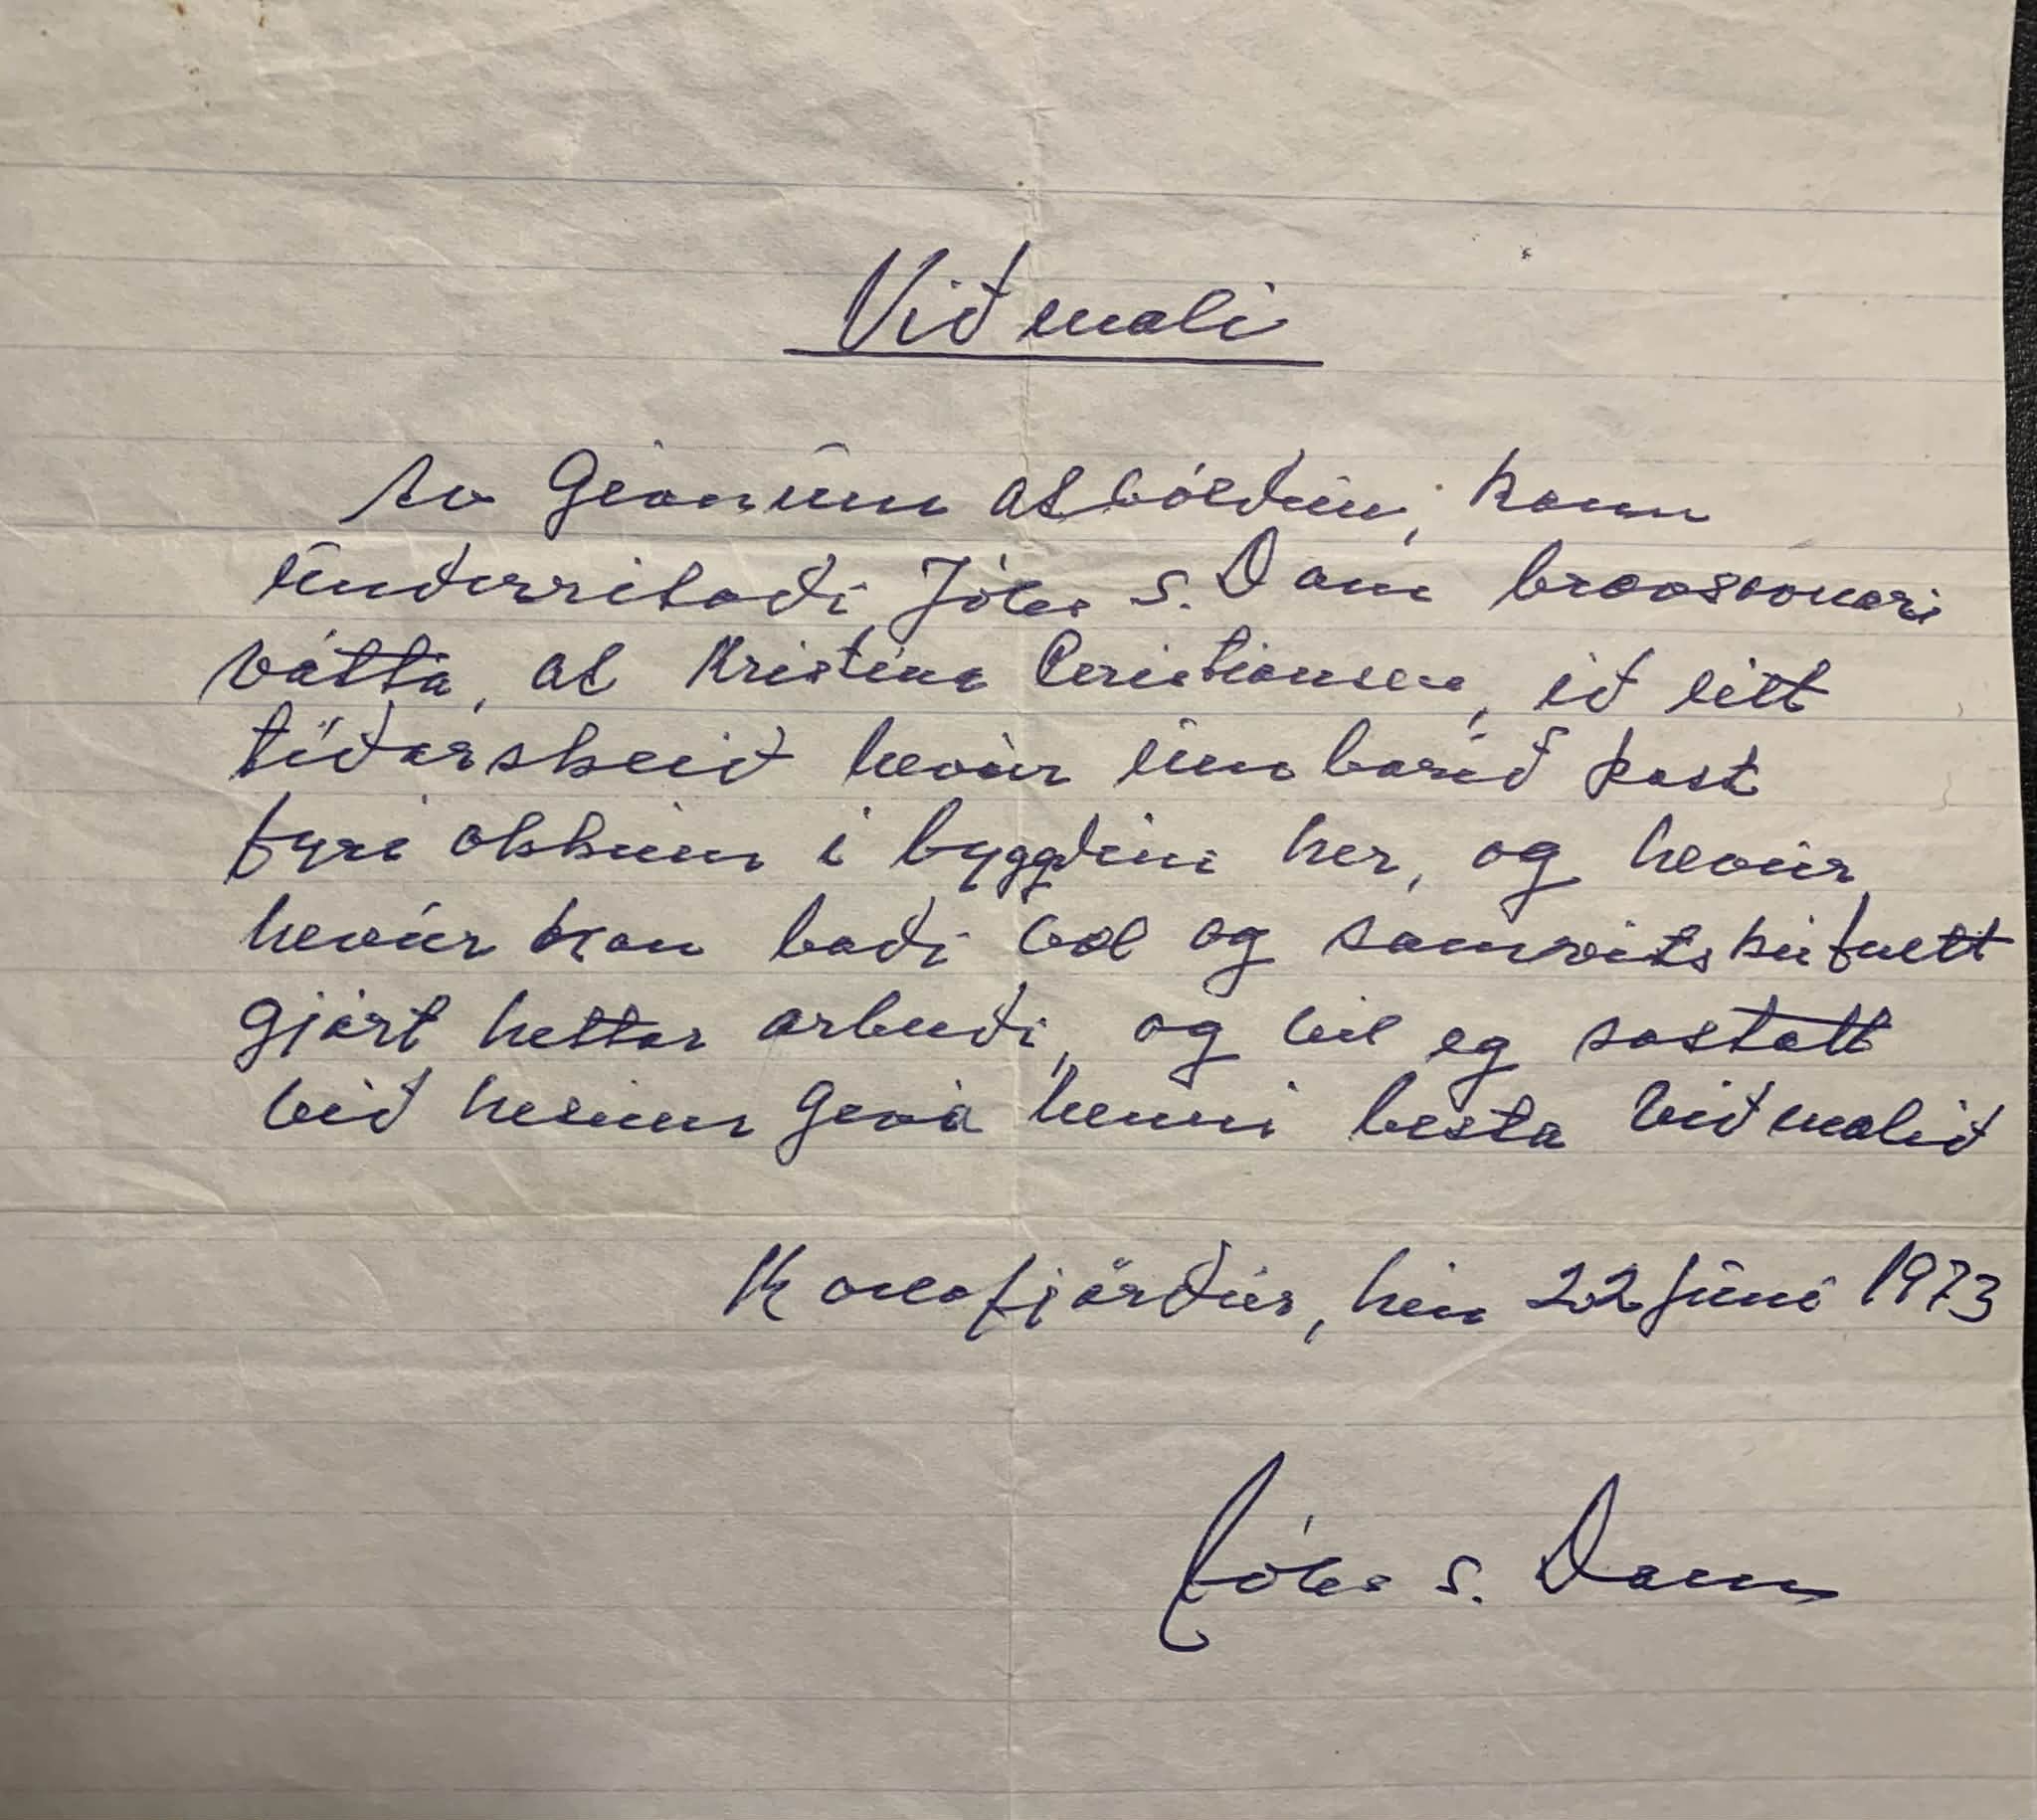 Viðmali
Av Givnum atvóldum, kann
Undirritaði Jóhs s. Dam bravsavnari
vátta, at Kristina Cristiansen, ið eitt
tíðarskeið hevur umborið post
fyri okkum i bygdini her, og hevur
hevur hon baði væl og samvitskufult
gjørt hettar arbeiði, og vil eg sostatt
við hesum geva henni besta viðmalið
Kollafjørður, hin 22 Júni 1973
Jóhs s. Dam